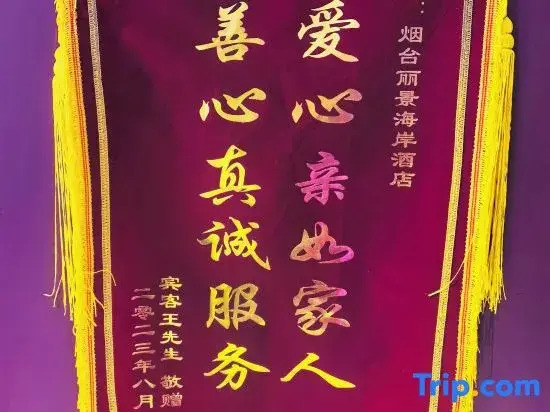 烟台丽景海岸酒店
爱心亲如家人
善心真诚服务
宾客王先生 敬赠
二零二三年八月
Trip.com